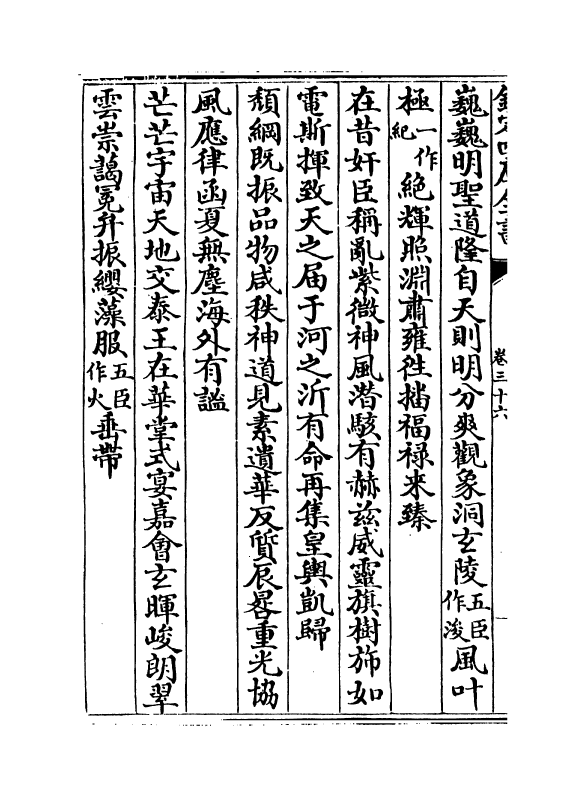 欽定四庫全書
卷三十六
巍巍明聖道隆自天則明分爽觀象洞玄陵五臣作浚風叶
極一作紀絶輝照淵肅雍徃播福禄来臻
在昔奸臣稱亂紫微神風潛駭有赫兹威靈旗樹斾如
電斯揮致天之届于河之沂有命再集皇輿凱歸
頽綱既振品物咸秩神道見素遺華反質辰晷重光協
風應律函夏無塵海外有謐
芒芒宇宙天地交泰王在華堂式宴嘉會玄暉峻朗翠
雲崇藹冕弁振纓藻服五臣作火垂帶